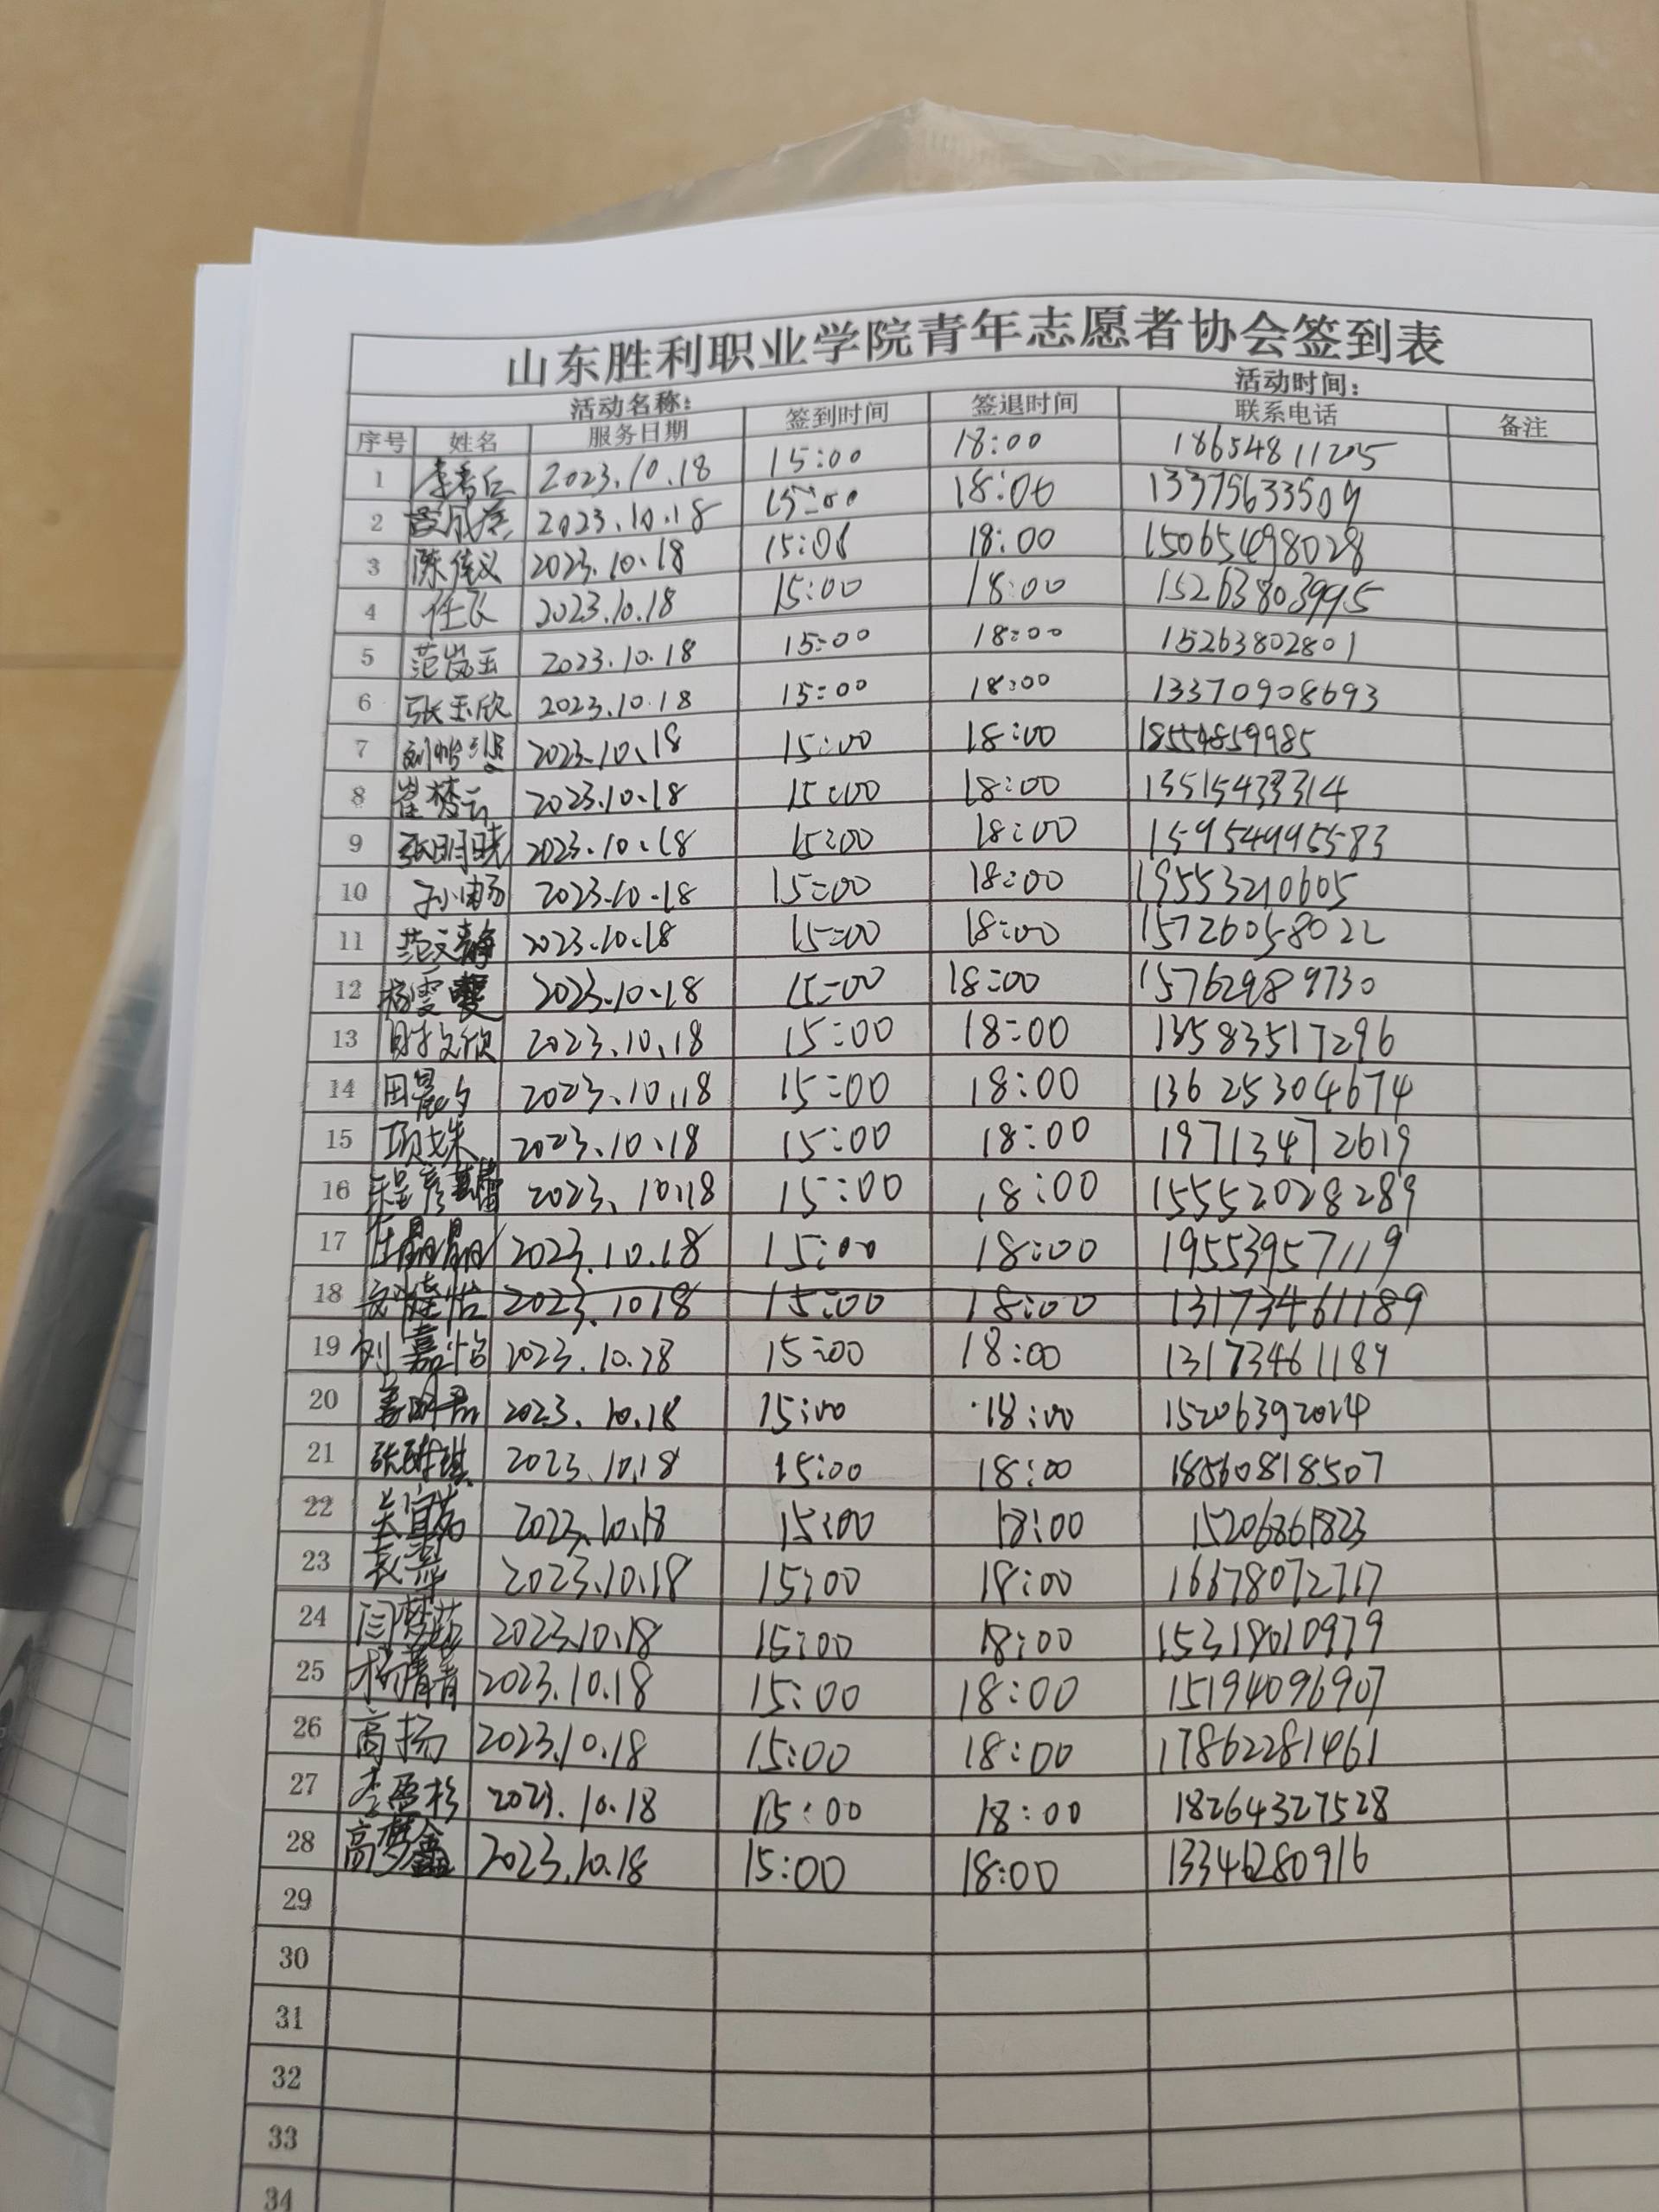 山东胜利职业学院青年志愿者协会签到表
活动名称: 活动时间:
序号 姓名 服务日期 签到时间 签退时间 联系电话 备注
1 2023.10.18 15:00 18:00 18654811205
2 2023.10.18 15:00 18:00 13375633509
3 陈佳义 2023.10.18 15:00 18:00 15065498028
4 任飞 2023.10.18 15:00 18:00 15263803995
5 范岚玉 2023.10.18 15:00 18:00 15263802801
6 张玉欣 2023.10.18 15:00 18:00 13370908693
7 2023.10.18 15:00 18:00 18554859985
8 崔梦云 2023.10.18 15:00 18:00
9 张明晓 2023.10.18 15:00 18:00 15954995583
10 2023.10.18 15:00 18:00 19553210605
11 范文静 2023.10.18 15:00 18:00 15726058022
12 杨雯 2023.10.18 15:00 18:00 15762989730
13 时文欣 2023.10.18 15:00 18:00 13583517296
14 田晨夕 2023.10.18 15:00 18:00 13625304674
15 项姝 2023.10.18 15:00 18:00 19713472619
16 程彦 2023.10.18 15:00 18:00 15552028289
17 庄晶晶 2023.10.18 15:00 18:00 19553957119
18 2023.1018 15:00 18:00 13173461189
19 刘嘉怡 2023.10.18 15:00 18:00 13173461189
20 姜明君 2023.10.18 15:00 18:00 15206392014
21 张琳琪 2023.10.18 15:00 18:00 18560818507
22 吴宜芮 2023.10.18 15:00 18:00 15206861823
23 袁 2023.10.18 15:00 18:00 16678072717
24 闫梦茹 2023.10.18 15:00 18:00 15318010979
25 杨青青 2023.10.18 15:00 18:00 15194096907
26 高扬 2023.10.18 15:00 18:00 17862281461
27 李盈杉 2023.10.18 15:00 18:00 18264327528
28 高梦鑫 2023.10.18 15:00 18:00 13346280916
29
30
31
32
33
34